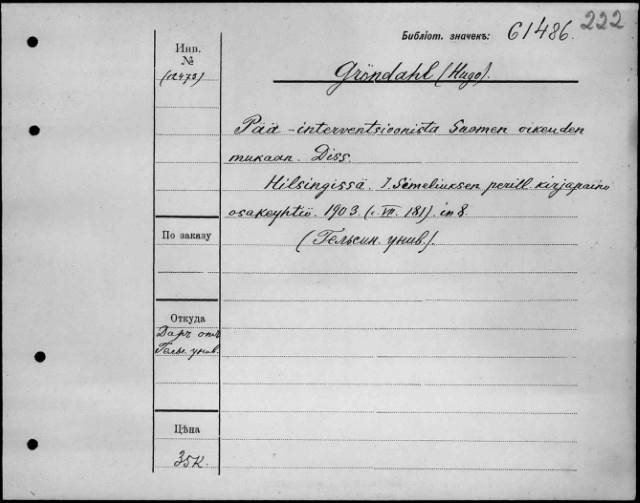 Библіот. значекъ: 61486. 222
Инв. №
(12473)
Gröndahl (Hugo).
Pää-interventsioonista Suomen oikeuden
mukaan. Diss.
Hilsingissä. J. Simeliuksen perill. kirjapaino
osakeyhtiö. 1903. (. VII. 181). in 8.
(Гельсин. унив.).
По заказу
Откуда
Даръ отъ
Гельс. унив.
Цѣна
35к.